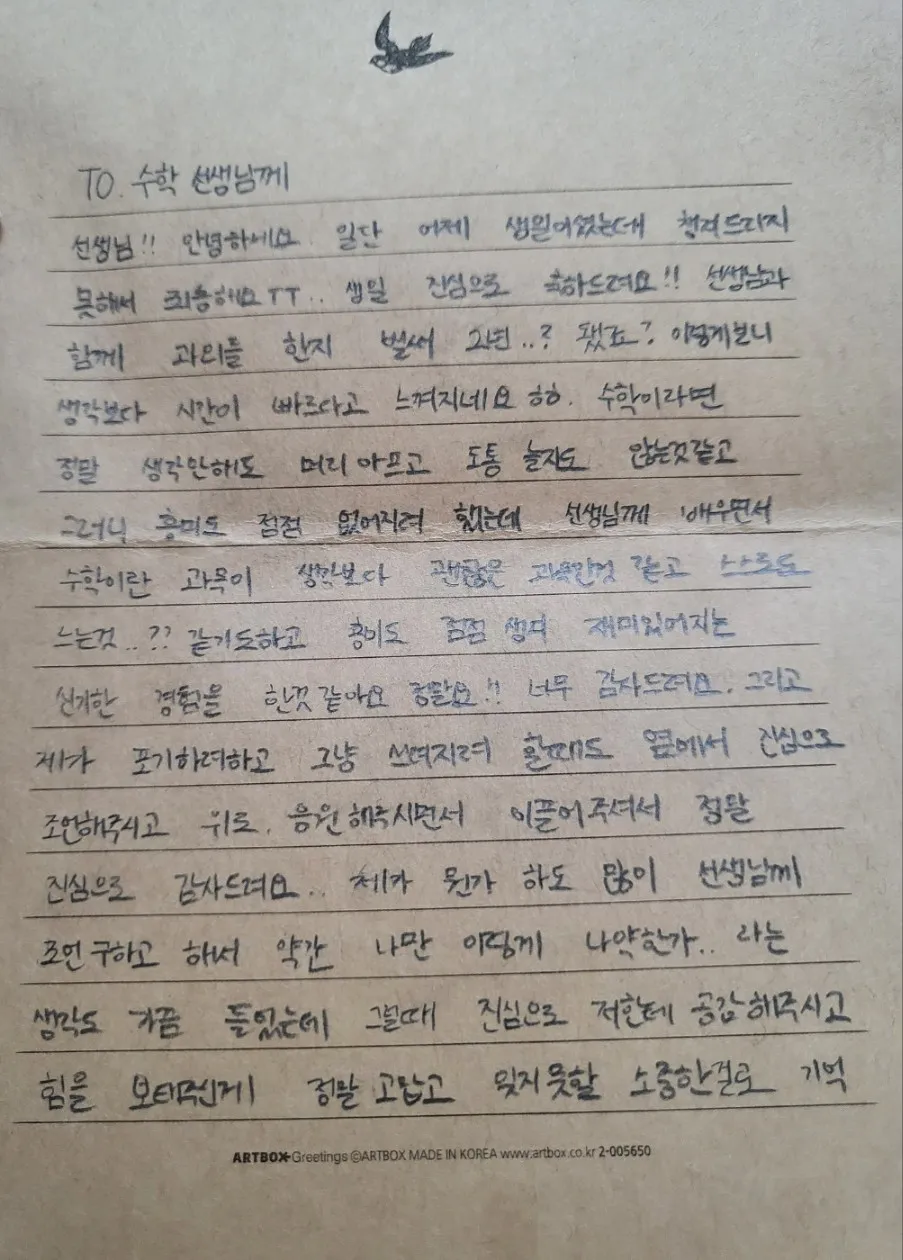 TO. 수학 선생님께
선생님!! 안녕하세요 일단 어제 생일이셨는데 챙겨드리지
못해서 죄송해요TT.. 생일 진심으로 축하드려요!! 선생님과
함께 과외를 한지 벌써 2년..? 됐죠? 이렇게보니
생각보다 시간이 빠르다고 느껴지네요 ㅎㅎ. 수학이라면
정말 생각만해도 머리아프고 도통 늘지도 않는것같고
그러니 흥미도 점점 없어지려 했는데 선생님께 배우면서
수학이란 과목이 생각보다 괜찮은 과목인것 같고 스스로도
느는것..?? 같기도하고 흥미도 점점 생겨 재미있어지는
신기한 경험을 한것같아요 정말요!! 너무 감사드려요. 그리고
제가 포기하려하고 그냥 쓰러지려 할때도 옆에서 진심으로
조언해주시고 위로, 응원해주시면서 이끌어주셔서 정말
진심으로 감사드려요.. 제가 뭔가 하도 많이 선생님께
조언구하고 해서 약간 나만 이렇게 나약한가.. 라는
생각도 가끔 들었는데 그럴때 진심으로 저한테 공감해주시고
힘을 보태주신게 정말 고맙고 잊지못할 소중한걸로 기억
ARTBOX Greetings ©ARTBOX MADE IN KOREA www.artbox.co.kr 2-005650